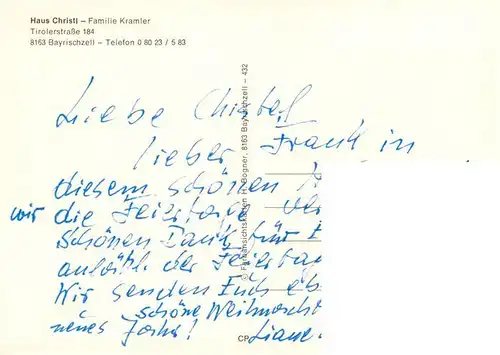 Haus Christl – Familie Kramler
Tirolerstraße 184
8163 Bayrischzell – Telefon 0 80 23 / 5 83
© Farbansichtskarten H. Bogner, 8163 Bayrischzell – 432
Liebe Christel
lieber Frank in
diesem schönen
wir die Feiertage
schönen Dank für
der Feiertag
Wir senden Euch
schöne Weihnacht
neues Jahr! Liane.
CP